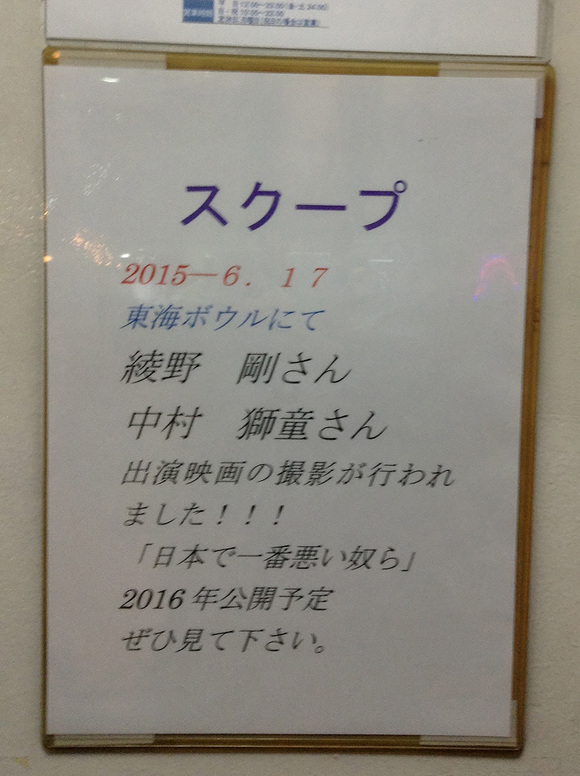 スクープ
2015―６．１７
東海ボウルにて
綾野　剛さん
中村　獅童さん
出演映画の撮影が行われ
ました！！！
「日本で一番悪い奴ら」
2016年公開予定
ぜひ見て下さい。